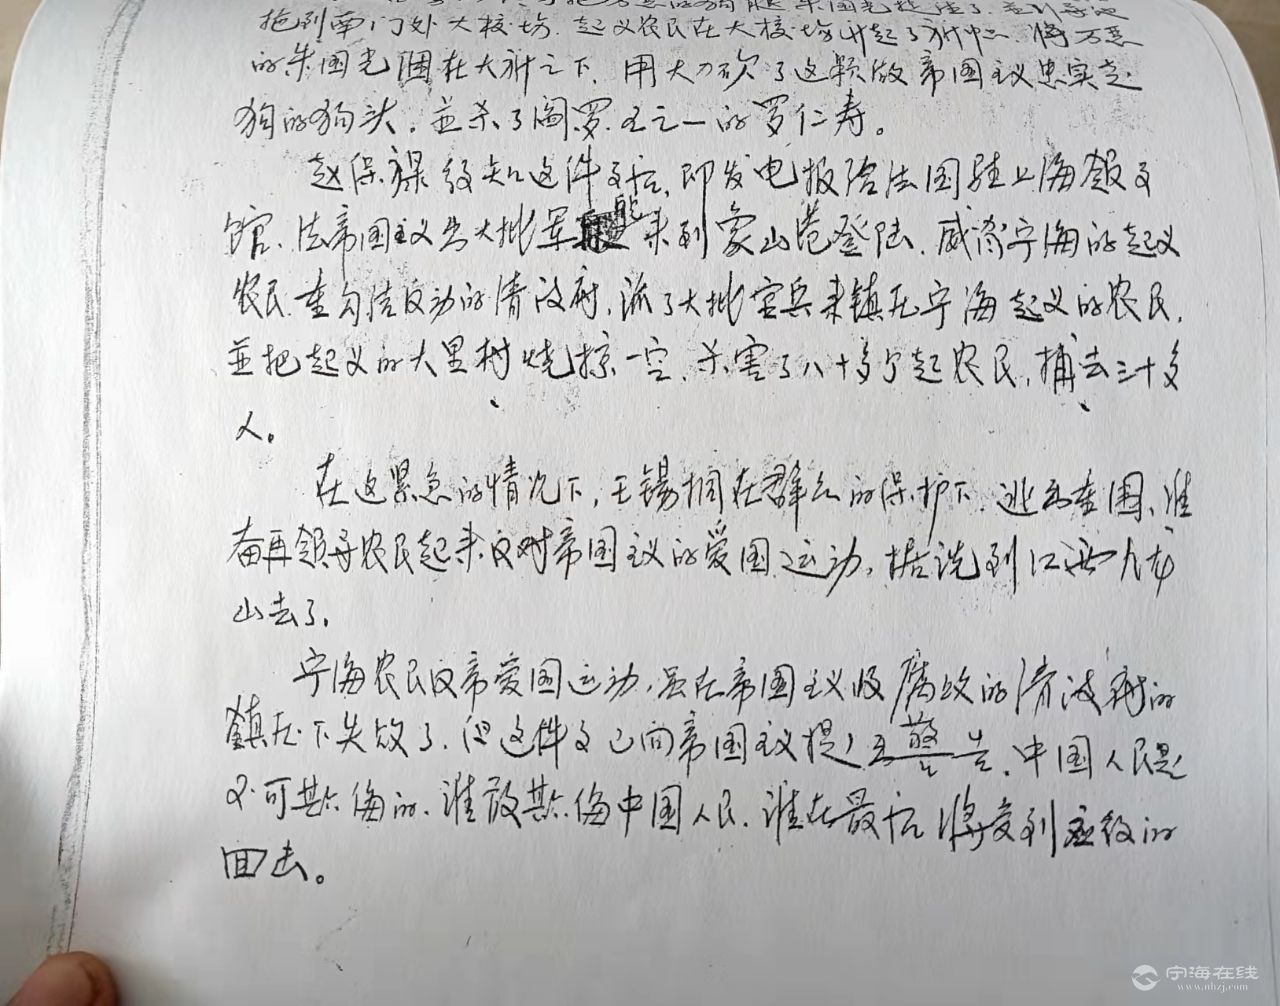 拖到南门外大校场. 起义农民在大校场升起了 将万恶
的朱国光困在大 之下. 用大刀砍了这颗做帝国主议忠实走
狗的狗头. 並杀了阎罗王之一的罗仁寿。
赵保禄 知这件事后, 即发电报给法国驻上海领事
馆、法帝国主义出大批军舰来到象山港登陆. 威胁宁海的起义
农民. 勾结反动的清政府, 派了大批官兵来镇压宁海起义的农民,
並把起义的大里村烧掠一空、杀害了八十多个起农民, 捕去三十多
人。
在这紧急的情况下, 王锡桐在群众的保护下. 逃出 围、准
奋再领导农民起来反对帝国主议的爱国运动, 据说到江西九龙
山去了.
宁海农民反帝爱国运动, 虽在帝国主议 腐败的清政府的
镇压下失败了. 但这件事已向帝国主议提出警告. 中国人民是
不可欺侮的. 谁敢欺侮中国人民. 谁在最后将受到应级的
回击。
宁海在线
www.nhzj.com